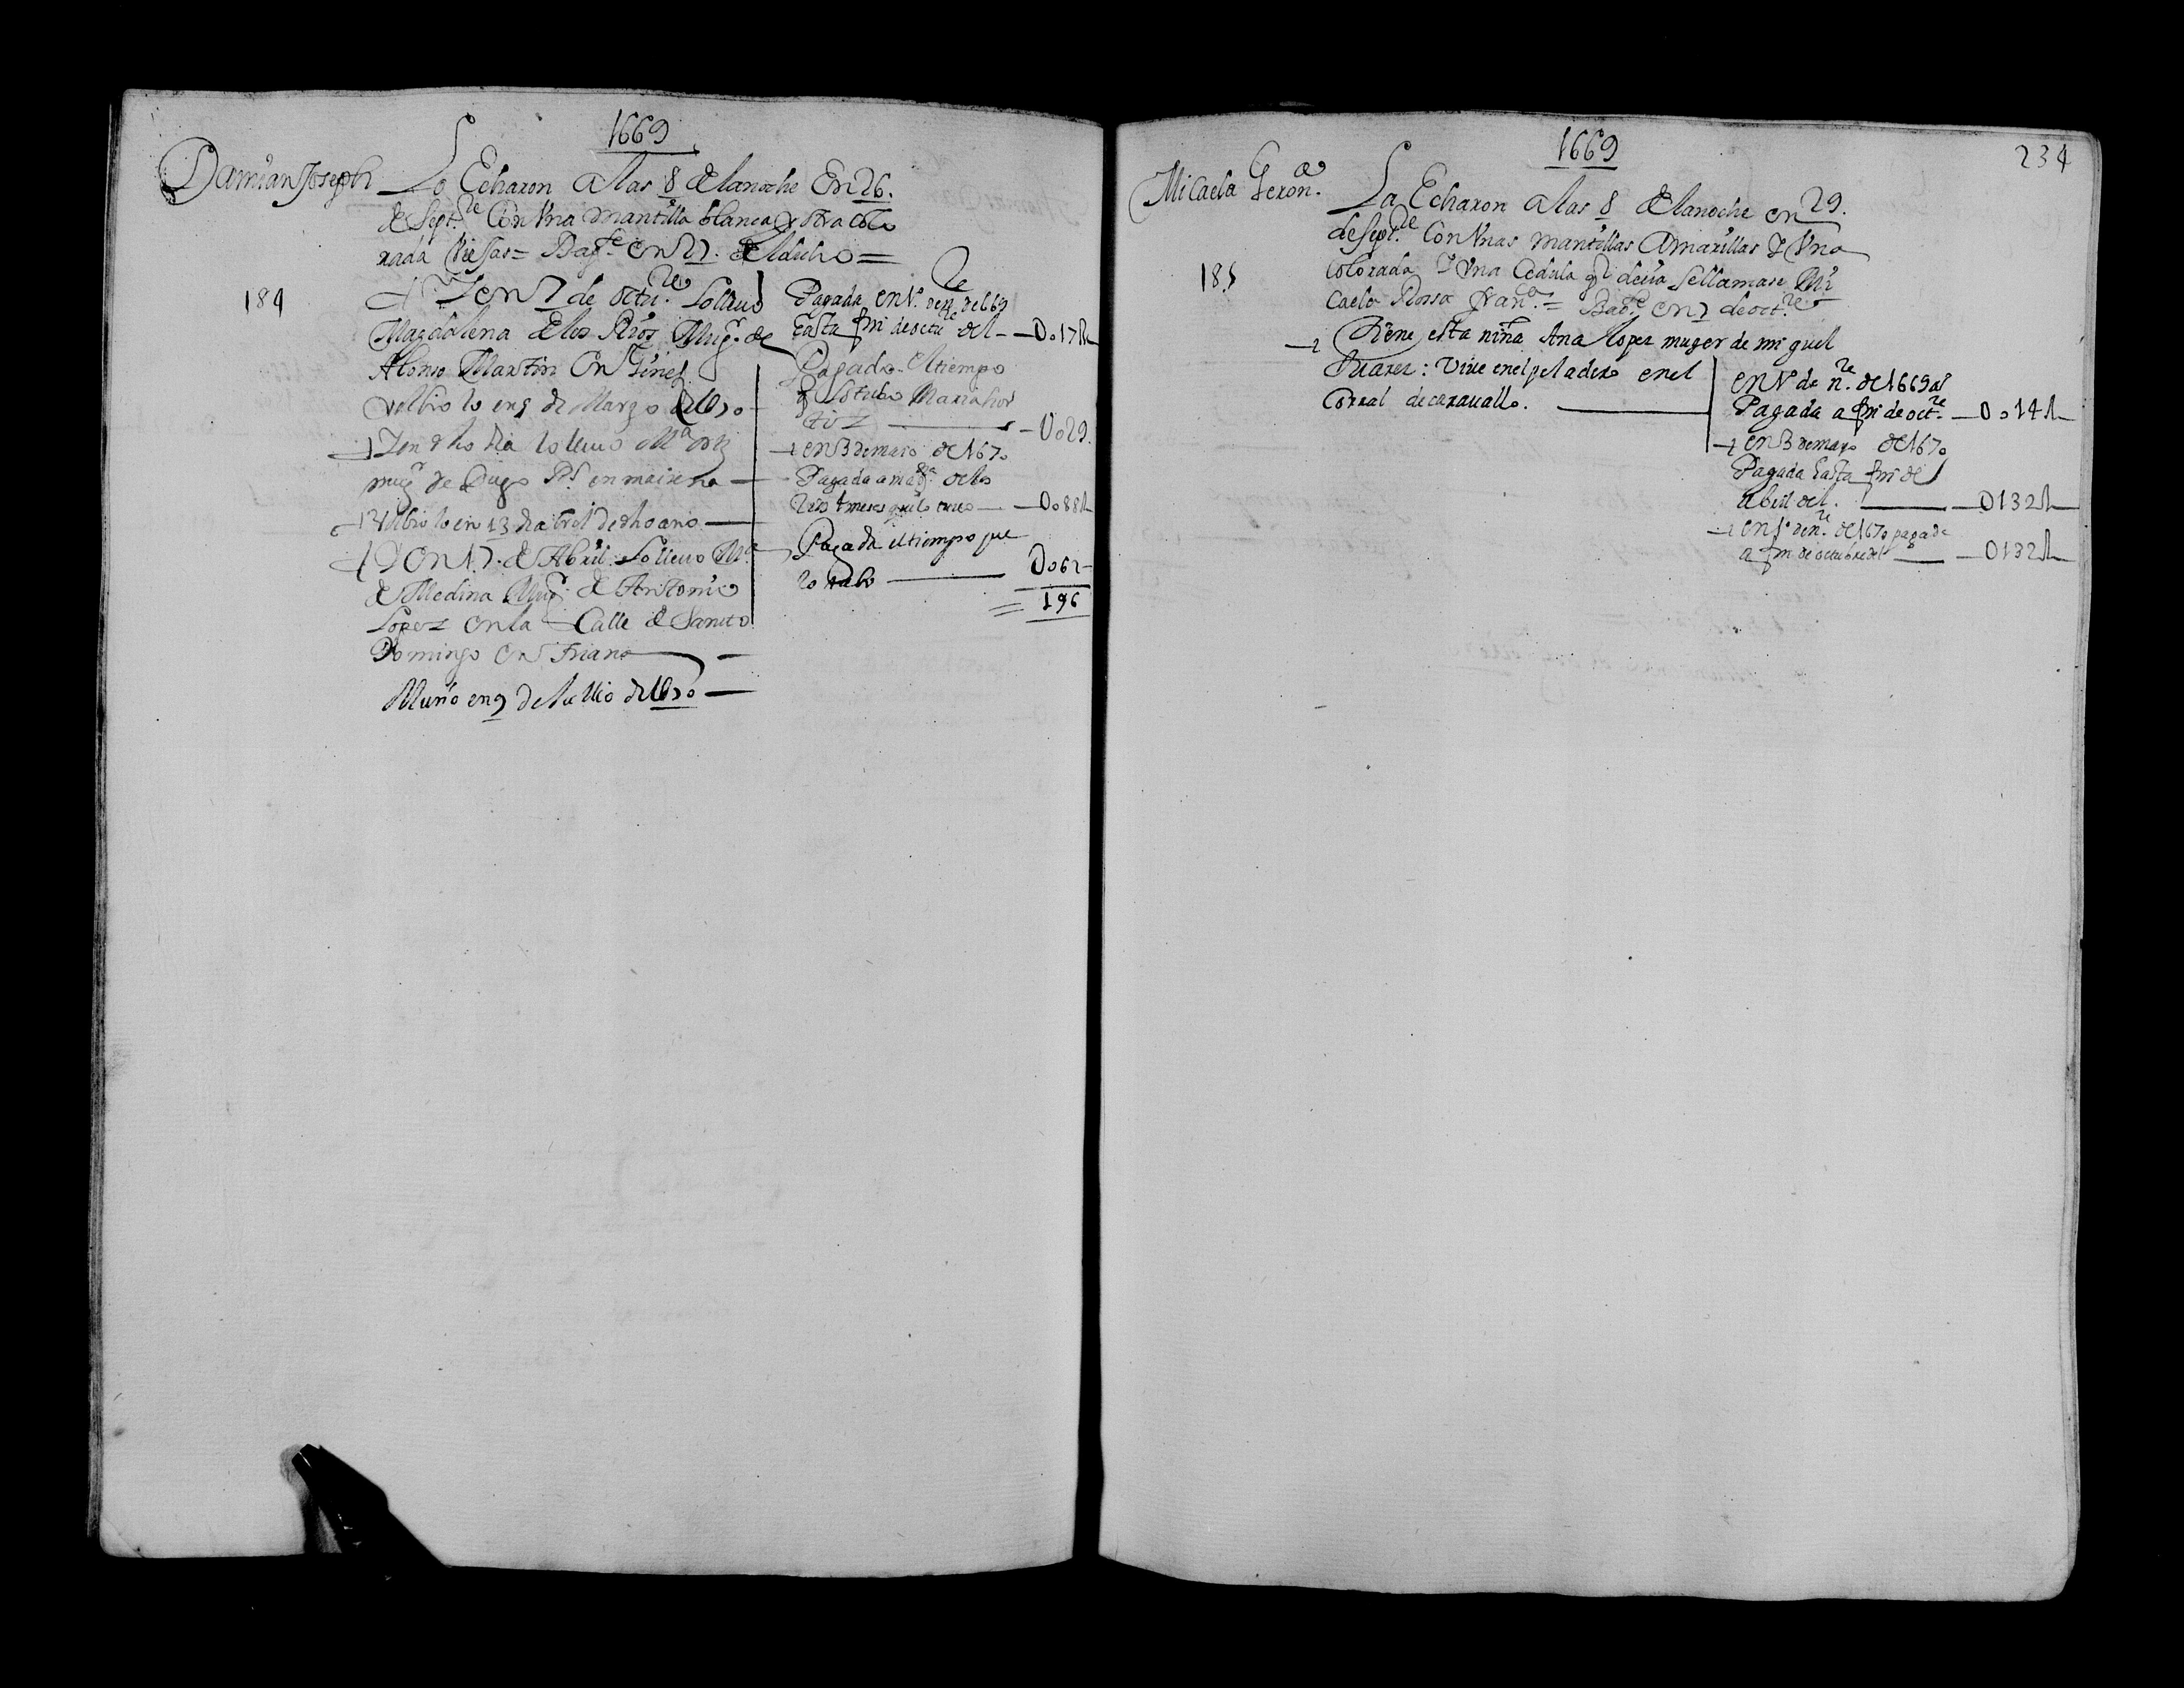 1669
Damian Joseph
Lo Echaron a las 8 de la noche En 26.
de Septre Con Vna mantilla blanca y otra colo
rada Viejas = Bapdo en 27. del dicho =
184
Y en 7 de octre Lo lleuo
Magdalena de los Rios Muger de
Alonso Martin En Gines
Voluio lo en 5 de Março de 1670
Y en dho dia lo lleuo Ma orti
muger de Diego Ps en mairena
Voluio lo en 13 de abril de dho ano
Y en 17. de Abril Lo lleuo Ma
de Medina Muger de Antonio
Lopez en la Calle de Santo
Domingo en Triana
Murio en 9 de Jullio de 1670
Pagada en 1º de nre de 1669
hasta fin de octre del — Do17R
Pagado el tiempo
q lo tubo Maria hor
tiz — Do29.
en 3 de maio de 1670
Pagada a magna de los
Rios 4 meses que lo tuuo — Do88R
Pagada el tiempo que
lo tubo — Do62
= 196
1669
234
Micaela Gerona
La Echaron a las 8 de la noche en 29.
de Septre Con Vnas mantillas Amarillas Y Vna
185
Colorada Y Vna Cedula q decia se llamase Mi
caela Rossa frana = Bapda en 7 de octre
Tiene esta niña Ana lopez muger de miguel
Suarez: Viue en el peladero en el
Corral de carauallo.
en 1º de nre de 1669 as
Pagada a fin de octre — Do14R
en 3 de mayo de 1670
Pagada hasta fin de
Abril del. — D132R
en 1º de nre de 1670 pagada
a fin de octubre del — D132R